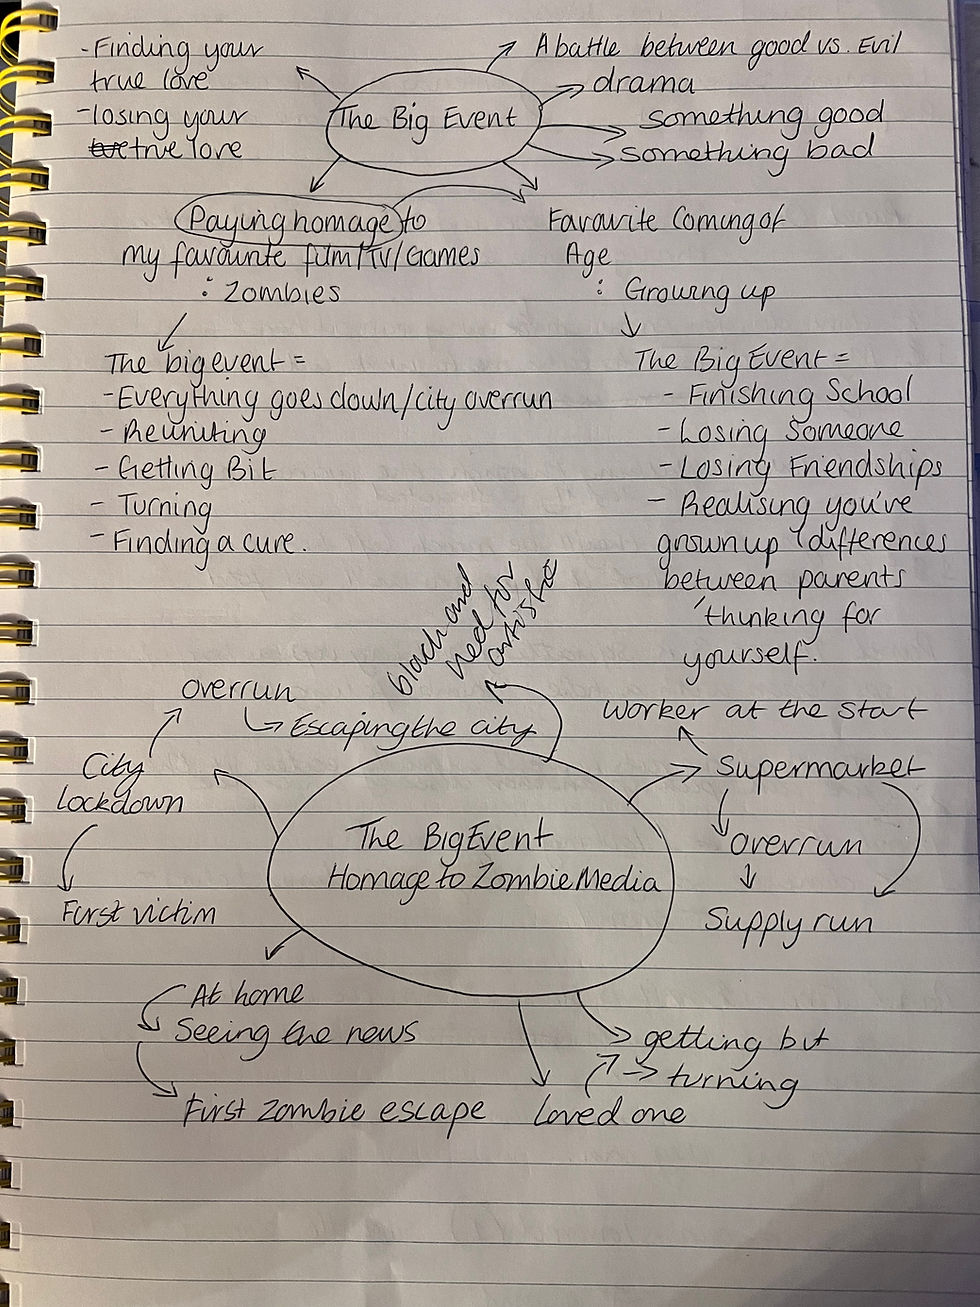 - Finding your
true love
- losing your
true love
The Big Event
A battle between good vs. Evil
drama
something good
something bad
Paying homage to
my favourite film/TV/Games
: Zombies
Favourite Coming of
Age
: Growing up
The big event =
- Everything goes down/city overrun
- Recruiting
- Getting Bit
- Turning
- Finding a cure.
The Big Event =
- Finishing School
- Losing Someone
- Losing Friendships
- Realising you've
grown up differences
between parents
thinking for
yourself.
black and
red for
overrun
Escaping the city
City
lockdown
First victim
The Big Event
Homage to Zombie Media
worker at the start
Supermarket
overrun
Supply run
At home
Seeing the news
First Zombie escape
getting bit
turning
Loved one